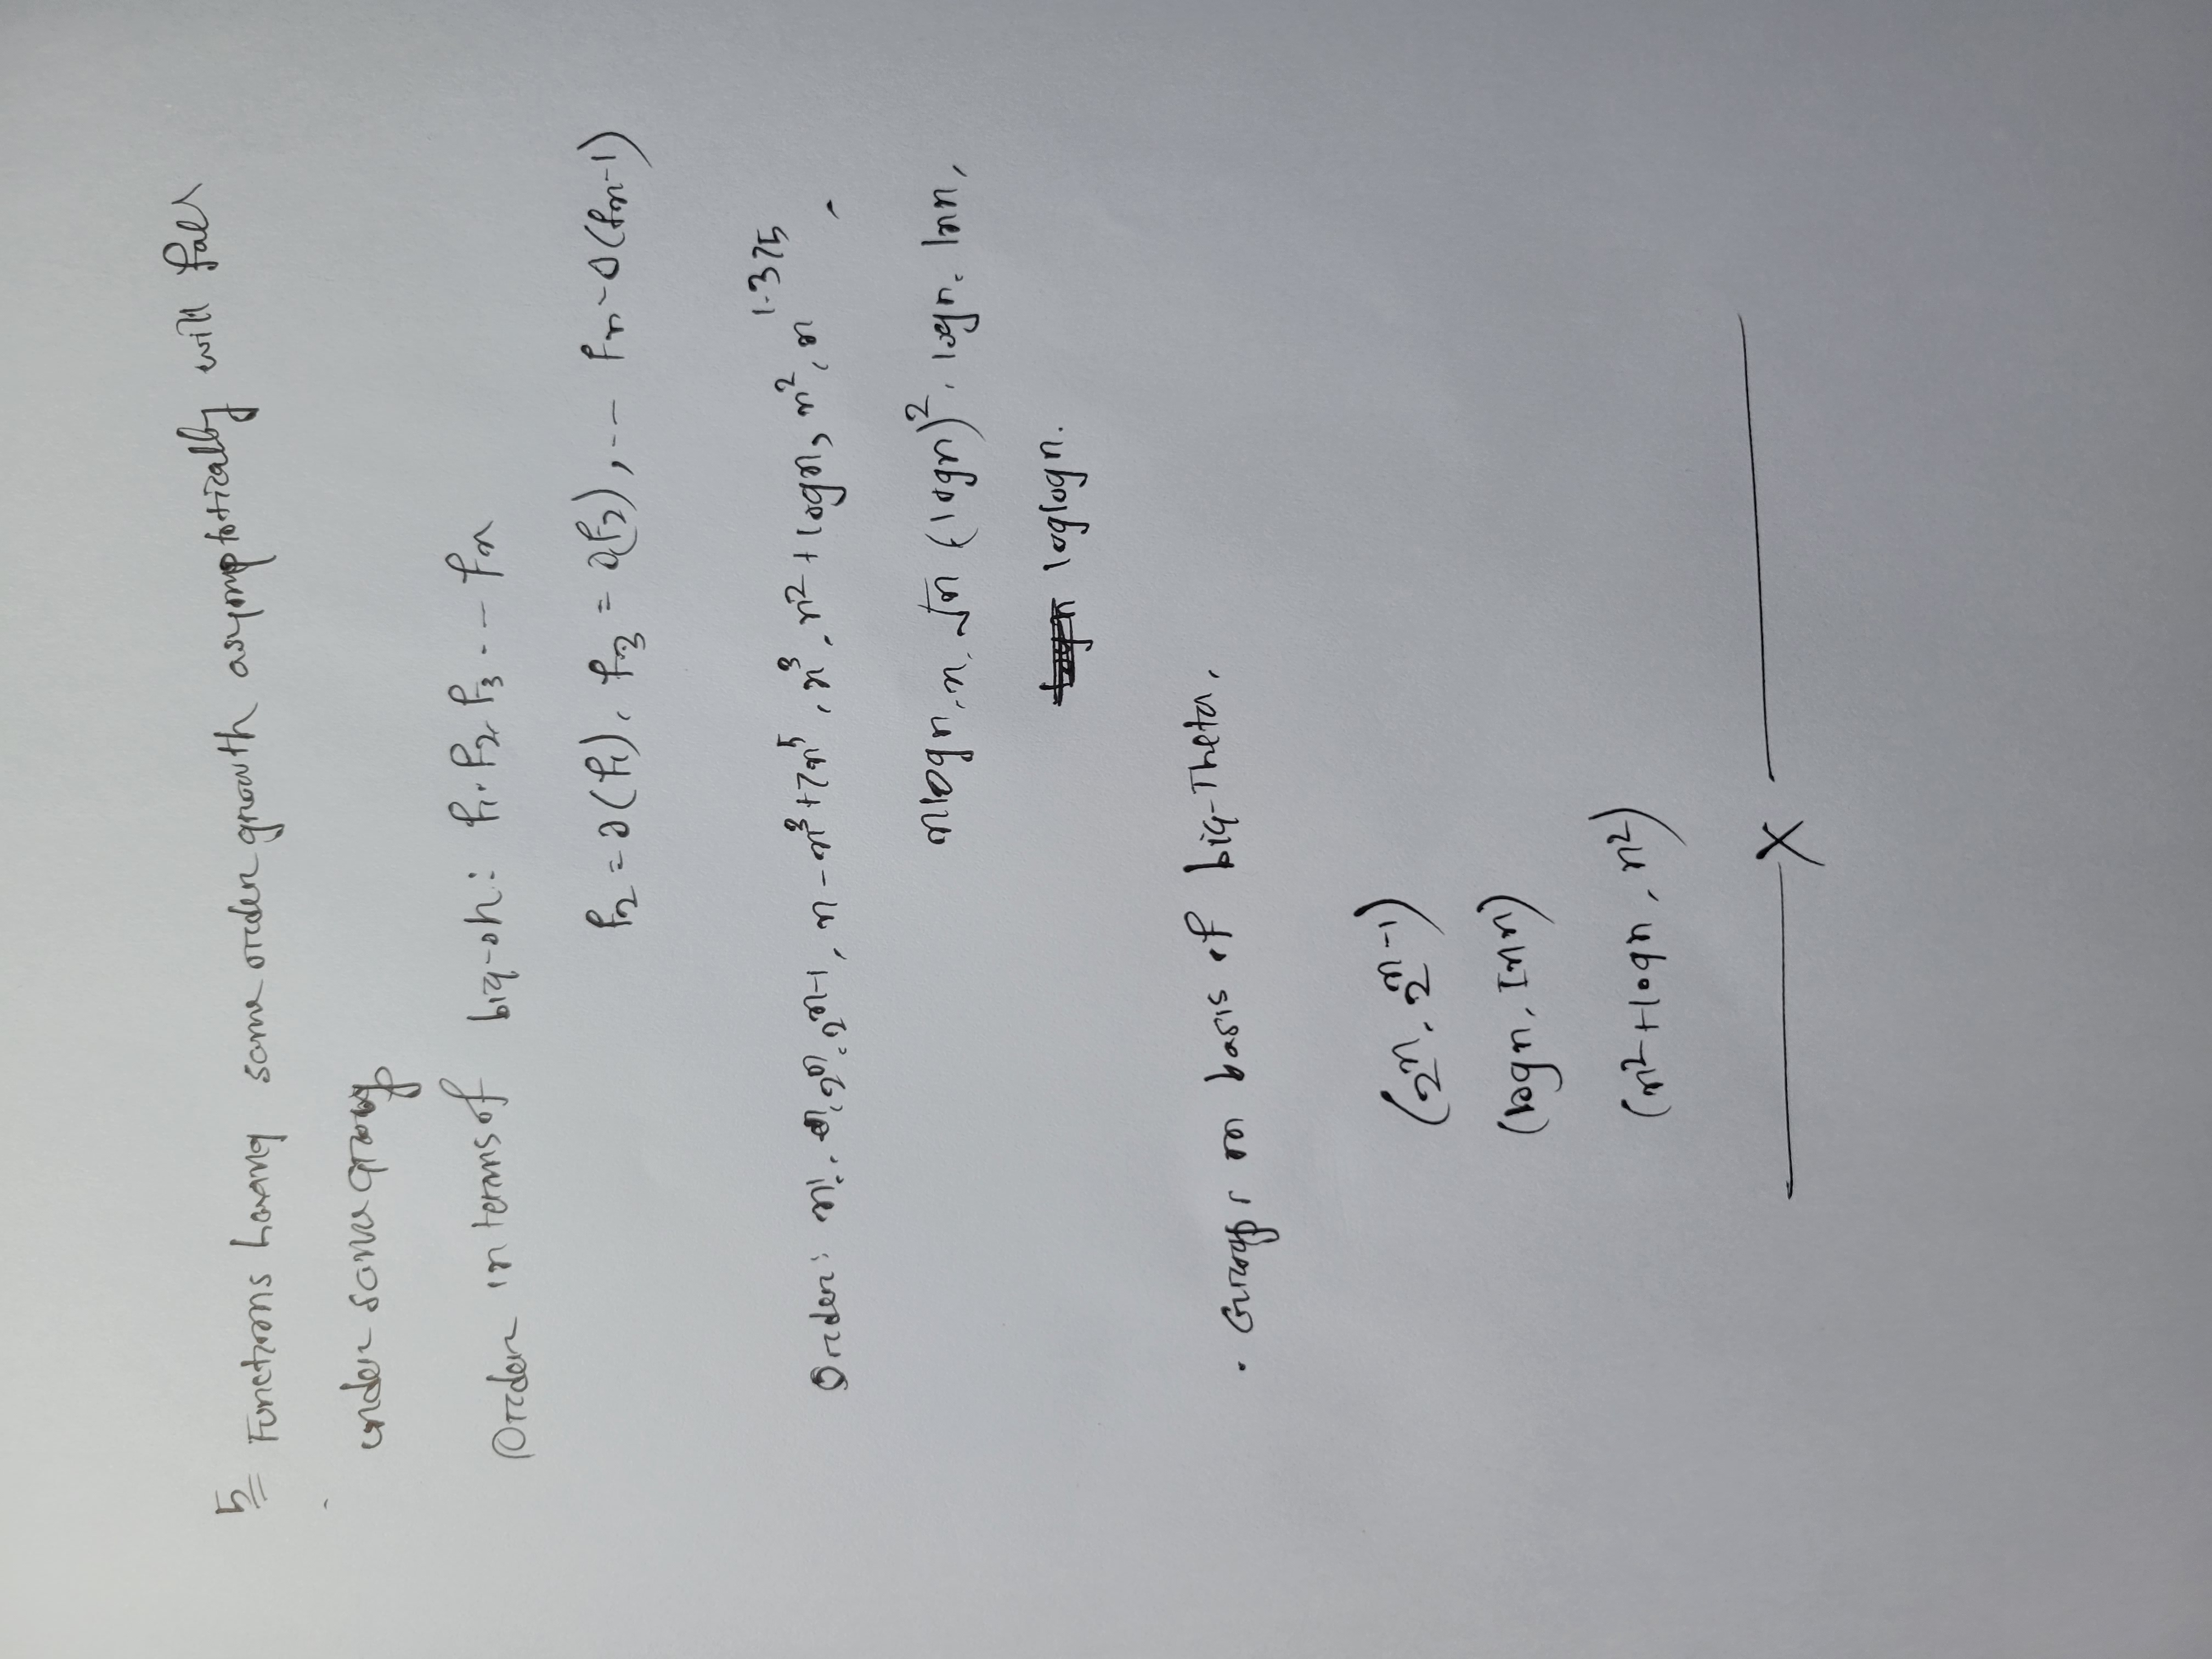 5 Functions having same order growth asymptotically will fall
under same group
Order in terms of big-oh: f₁, f₂, f₃ . -- fₙ
f₂ = O(f₁), f₃ = O(f₂), -- fₙ - O(fₙ-1)
Order: n!, 2ⁿ, 2ⁿ⁻¹, n - n³ + 7n⁵, n³, n² + logn, n², n^1.375,
nlogn, n, √n (logn)², logn, lnn,
loglogn.
. Groups on basis of big-Theta,
(2ⁿ, 2ⁿ⁻¹)
(logn, Inn)
(n² + logn, n²)
X